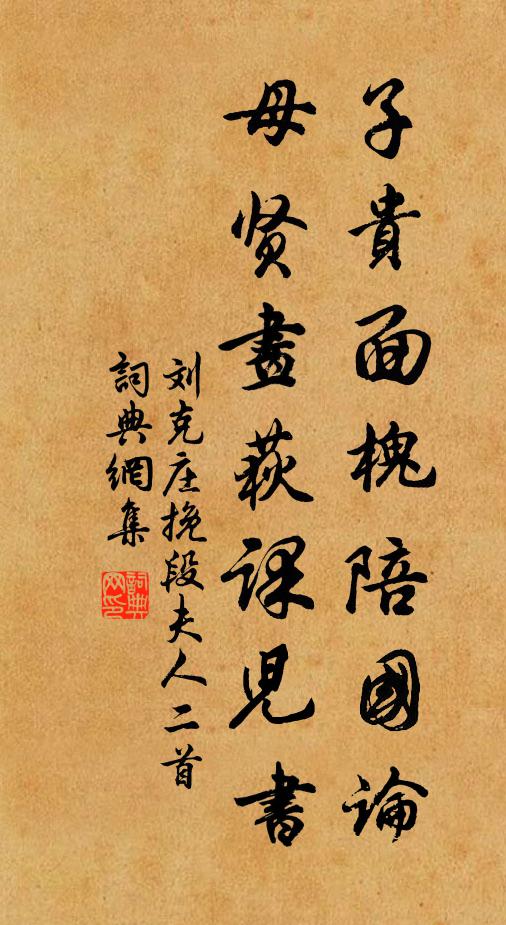 子貴面槐陪國論
母贤畫荻課児書
刘克庄挽段夫人二首
詞典網集
詞典網印